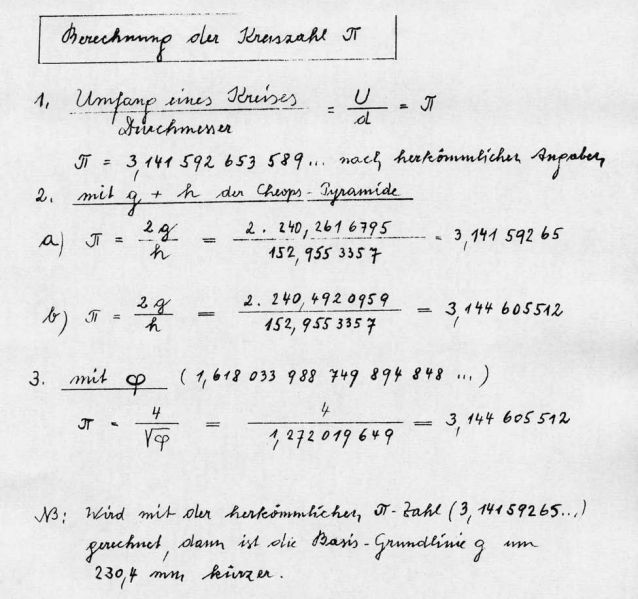 Berechnung der Kreiszahl π
1. Umfang eines Kreises / Durchmesser = U / d = π
π = 3,141 592 653 589... nach herkömmlichen Angaben
2. mit g + h der Cheops-Pyramide
a) π = 2g / h = 2 . 240,261 6795 / 152,955 3357 = 3,141 592 65
b) π = 2g / h = 2 . 240,492 0959 / 152,955 3357 = 3,144 605512
3. mit φ (1,618 033 988 749 894 848 ...)
π = 4 / √φ = 4 / 1,272 019 649 = 3,144 605 512
NB: Wird mit der herkömmlichen π-Zahl (3,14159265...)
gerechnet, dann ist die Basis-Grundlinie g um
230,4 mm kürzer.